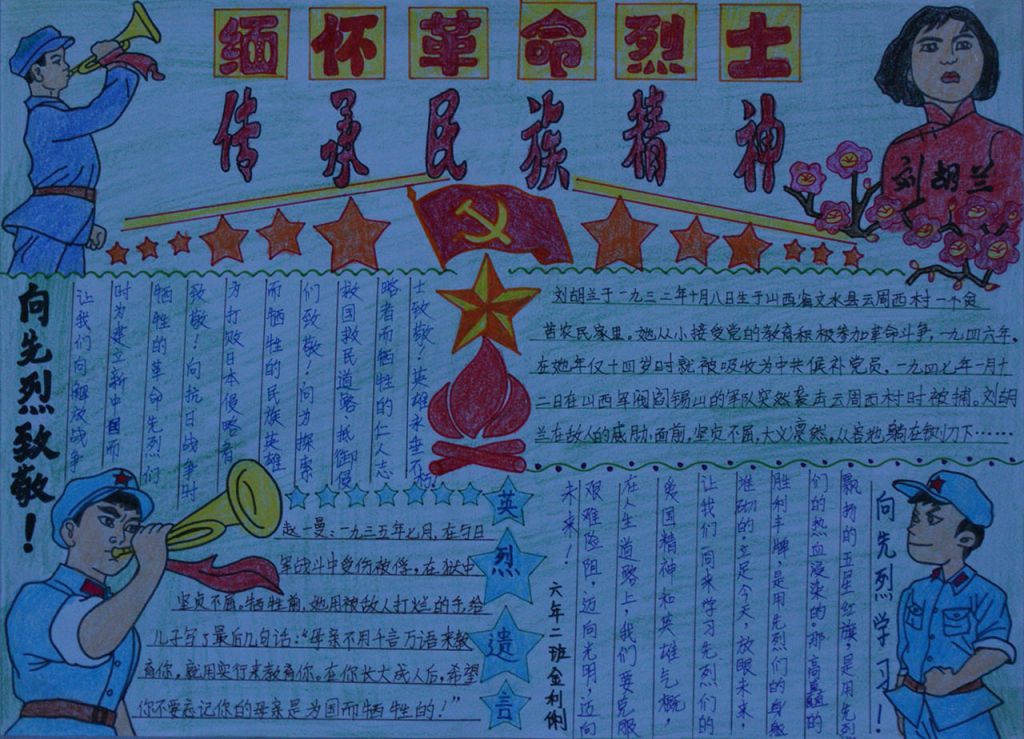 缅怀革命烈士
传承民族精神
刘胡兰
向先烈致敬！
让我们向解放战争
时为建立新中国而
牺牲的革命先烈们
致敬！向抗日战争时
为打败日本侵略者
而牺牲的民族英雄
们致敬！向为探索
救国救民道路、抵御侵
略者而牺牲的仁人志
士致敬！英雄永垂不朽！
刘胡兰于一九三二年十月八日生于山西省文水县云周西村一个贫
苦农民家里。她从小接受党的教育积极参加革命斗争，一九四六年，
在她年仅十四岁时就被吸收为中共候补党员，一九四七年一月十
二日在山西军阀阎锡山的军队突然袭击云周西村时被捕。刘胡
兰在敌人的威胁面前，坚贞不屈，大义凛然，从容地躺在铡刀下……
英烈遗言
赵一曼：一九三五年七月，在与日
军战斗中受伤被俘，在狱中
坚贞不屈。牺牲前，她用被敌人打烂的手给
儿子写了最后几句话：“母亲不用千言万语来教
育你，就用实行来教育你。在你长大成人后，希望
你不要忘记你的母亲是为国而牺牲的！”
向先烈学习！
飘扬的五星红旗，是用先烈
们的热血浸染的.那高矗的
胜利丰牌，是用先烈们的身躯
堆砌的.立足今天，放眼未来，
让我们同来学习先烈们的
爱国精神和英雄气概，
在人生道路上，我们要克服
艰难险阻，迈向光明，迈向
未来！
六年二班金利俐